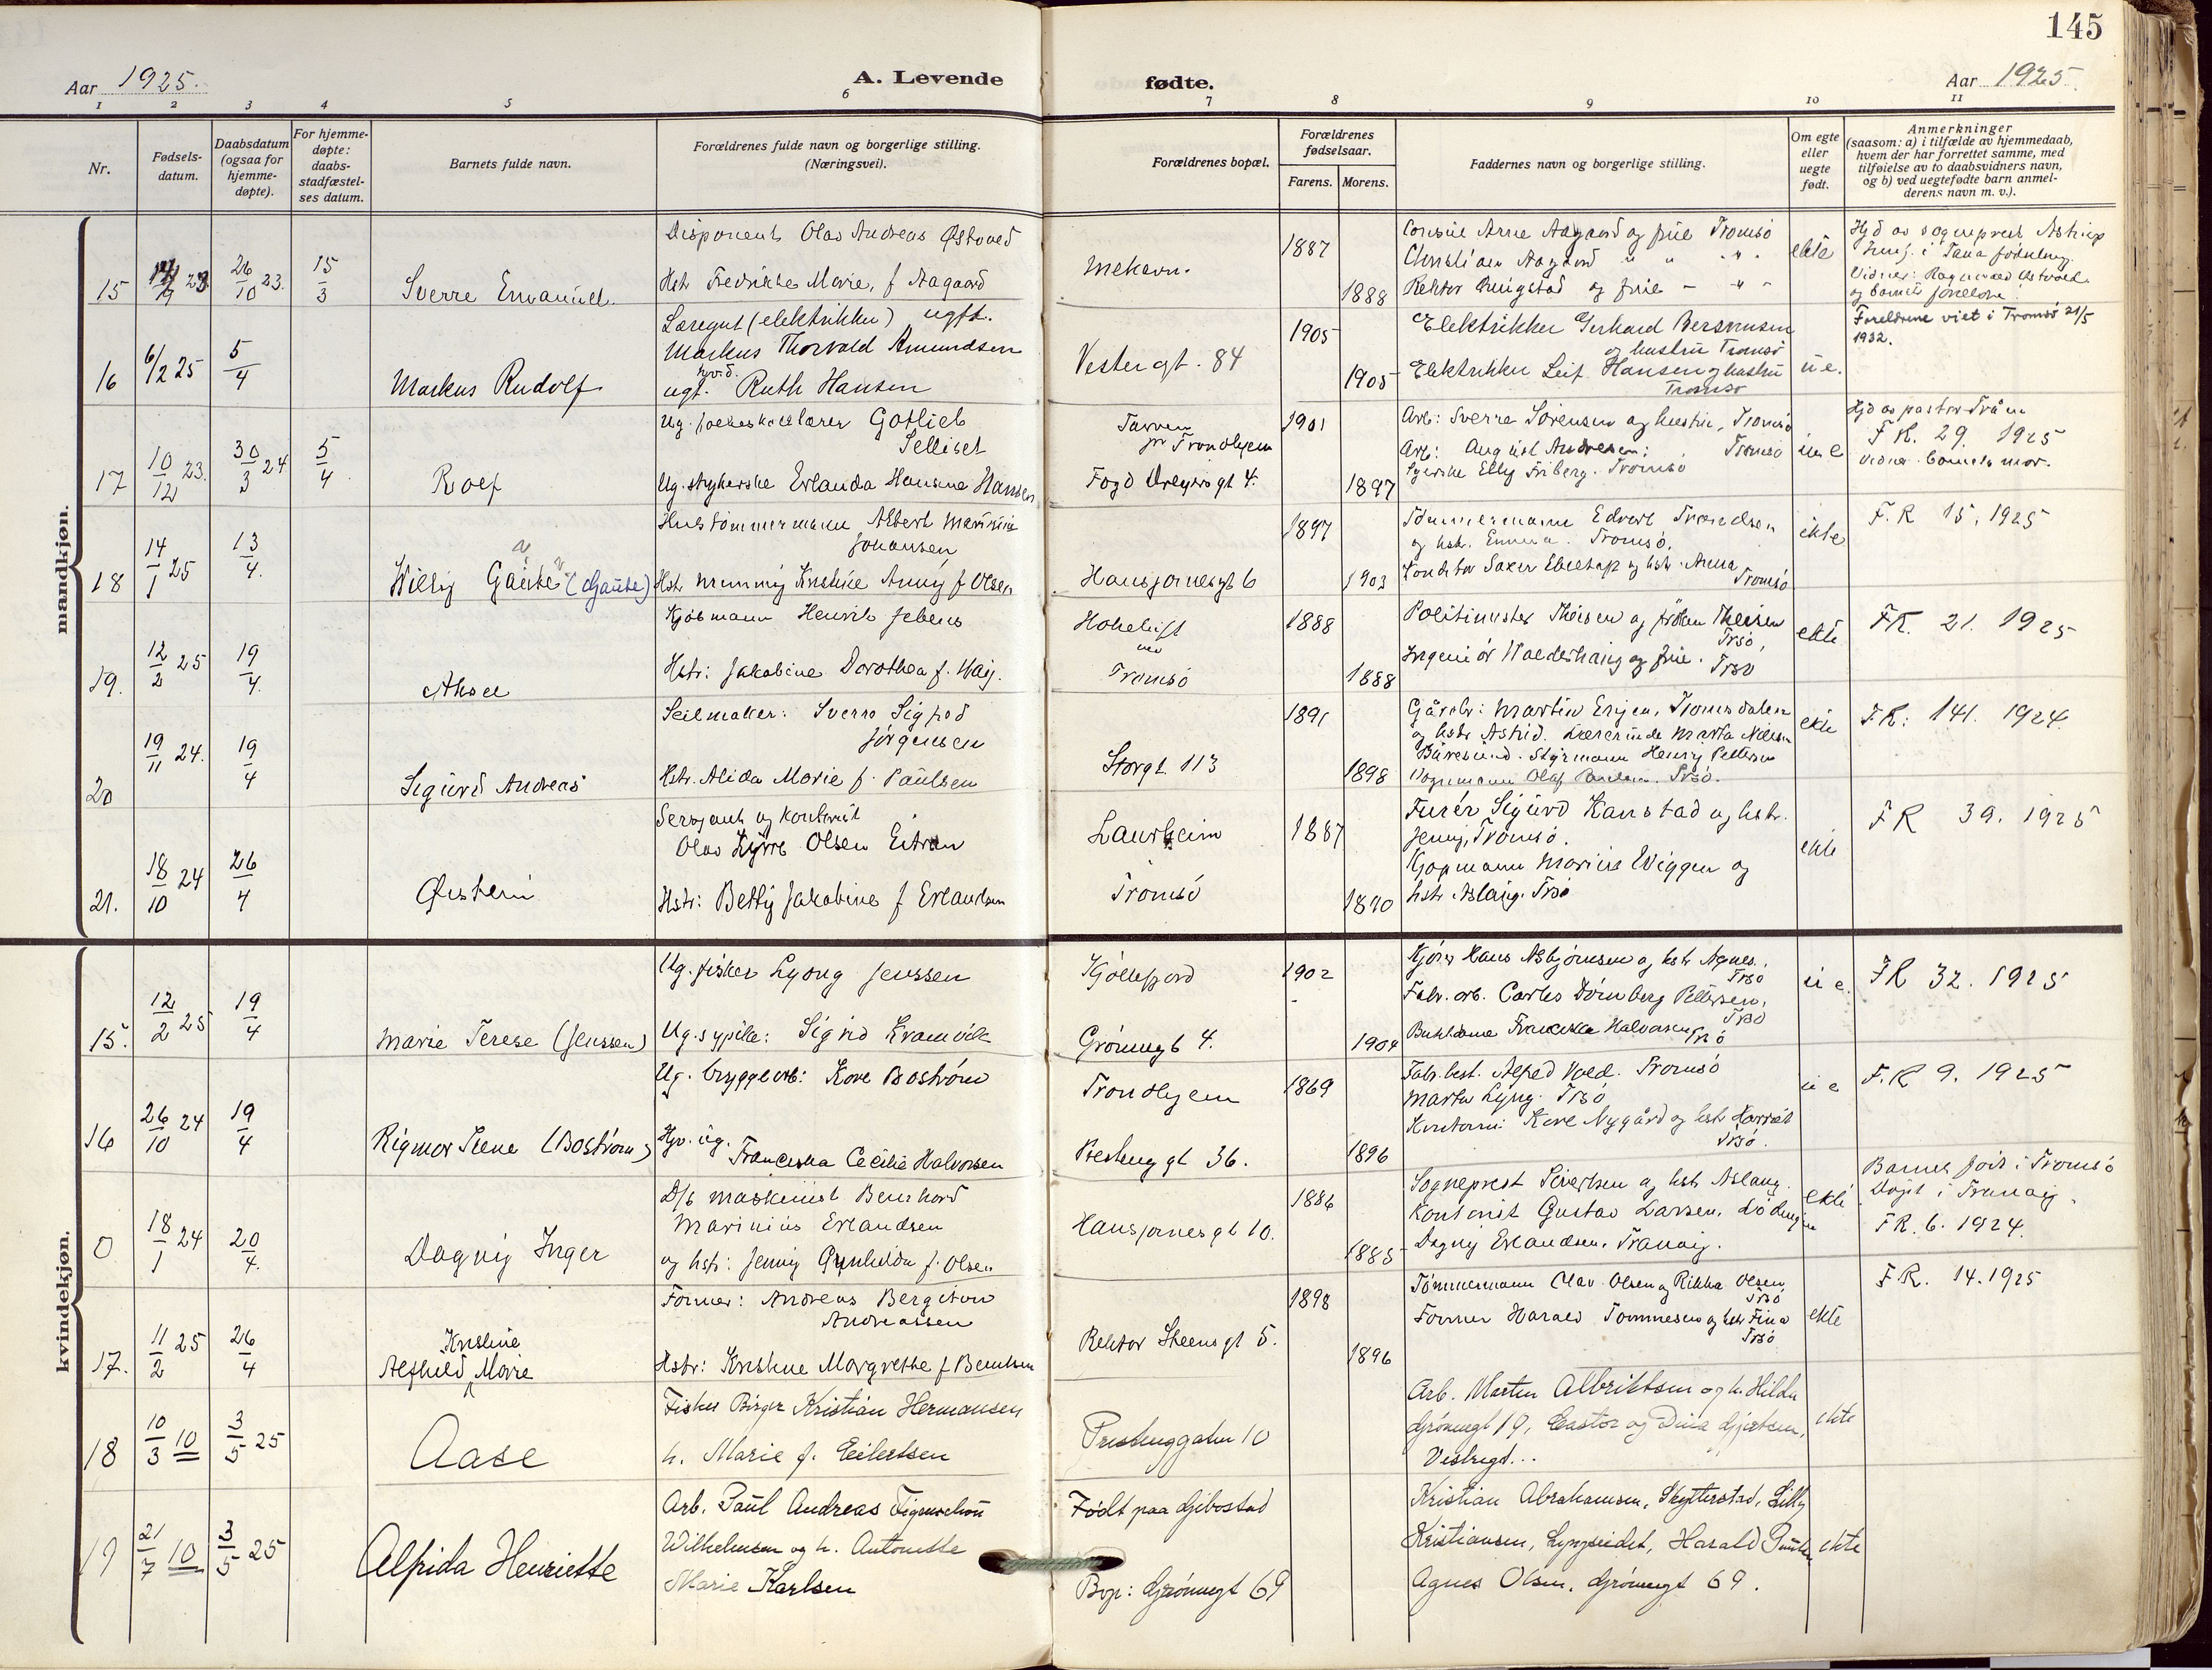 145
Aar 1925.
A. Levende
fødte.
Aar 1925.
1 2 3 4 5 6 7 8 9 10 11
Nr.
Fødsels-
datum.
Daabsdatum
(ogsaa for
hjemme-
døpte).
For hjemme-
døpte:
daabs-
stadfæstel-
ses datum.
Barnets fulde navn.
Forældrenes fulde navn og borgerlige stilling.
(Næringsvei).
Forældrenes bopæl.
Forældrenes
fødselsaar.
Farens. Morens.
Faddernes navn og borgerlige stilling.
Om egte
eller
uegte
født.
Anmerkninger
(saasom: a) i tilfælde av hjemmedaab,
hvem der har forrettet samme, med
tilføielse av to daabsvidners navn,
og b) ved uegtefødte barn anmel-
derens navn m. v.).
mandkjøn.
15
23
26/10 23.
15/3
Sverre Emanuel.
Disponent Olav Andreas Østvoed
Hstr Fedrikke Marie, f Aagaard
Mehavn.
1887
1888
Consul Arne Aagaard og frue Tromsø
Christian Aagaard " " " "
Rektor Ringstad og frue - " -
ekte
Hjd av sogneprest Astrup
i Tana
Vidner: Ragnvald
og barnets foreldre.
16
6/2 25
5/4
Markus Rudolf
Læregut (elektriker) ugft.
Markus Thorvald Amundsen
hvd.
ugt. Ruth Hansen
Vestergt. 84
1905
1905
Elektriker Gerhard Berntsen
og hustru Tromsø
Elektriker Leif Hansen og hustru
Tromsø
u e.
Foreldrene viet i Tromsø 21/5
1932.
17
10/12 23.
30/3 24
5/4
Rolf
Ug. folkeskolelærer Gotlieb
Selliset
Ug. strykerske Erlanda Hansine Hansen
Tarven
pr Trondhjem
Fogd Dreyersgt 4.
1901
1897
Arb: Sverre Sørensen og hustru, Tromsø
Arb: August Andresen; Tromsø
Syerske Elly Friberg. Tromsø
u e
Hjd av pastor
F R. 29. 1925
Vidner barnets mor.
18
14/1 25
13/4.
Willy Gaute (Gaute)
Hustømmermann Albert Marinius
Johansen
Hstr Mimmy Kristine Anny f Olsen
Hansjordnesgt 6
1897
1903
Tømmermann Edvart Trondsen
og hstr. Emma. Tromsø.
Konditor Saxer Ebeltoft og hstr. Anna
Tromsø
ekte
F. R 15, 1925
19.
12/2 25
19/4.
Aksel
Kjøbmann Henrik Jebens
Hstr: Jakobine Dorothea f. Waij.
Tromsø
1888
1888
Politimester Theisen og frøken Theisen
Trsø,
Ingeniør Walderhaug og frue. Trsø
ekte
FR. 21. 1925
20
19/11 24.
19/4
Sigurd Andreas
Seilmaker: Sverre Sigfred
Jørgensen
Hstr. Alida Marie f. Paulsen
Storgt. 113
1891
1898
Gårdbr: Martin Erijen, Tromsdalen
og hstr Astrid. Lærerinde Marta Nilsen
Styrmann Henry Pettersen
Vognmann Olaf Paulsen. Trsø.
ekte
F.R: 141. 1924.
21.
18/10 24
26/4
Øistein
Sersjant og kontorist
Olav Kyrre Olsen Eitran
Hstr: Betty Jakobine f Erlandsen
Laurheim
Tromsø
1887
1890
Furér Sigurd Kanstad og hstr.
Jenny, Tromsø.
Kjøpmann Marius Wiggen og
hstr. Aslaug. Trsø
ekte
FR 39. 1925
kvindekjøn.
15.
12/2 25
19/4
Marie Terese (Jenssen)
Ug. fisker Lyong Jenssen
Ug. sypike: Sigrid Kramvik
Kjøllefjord
Grønnegt 4.
1902
1904
Kjører Hans Asbjørnsen og hstr Agnes.
Trsø
Fabr. arb. Carlos Dörnberg Pettersen,
Trsø
Budeie Franciska Halvorsen Trsø
u e.
FR 32. 1925
16
26/10 24
19/4
Rigmor Irene (Bostrøm)
Ug. bryggearb: Kore Bostrøm
Hjv. ug.
Franciska Cecilie Halvorsen
Trondhjem
Prestenggt 36.
1869
1896
Fabr. best. Alfred Voed. Tromsø
Marta Lyng. Trsø
Kontorist Kore Nygård og hstr Harriet
Trsø.
u e
F. R 9. 1925
0
18/1 24
20/4.
Dagny Inger
D/S maskinist Bernhard
Marinius Erlandsen
og hstr: Jenny Gunhilda f. Olsen
Hansjordnesgt 10.
1886
1885
Sogneprest Sivertsen og hstr Aslaug.
Kontorist Gustav Larsen. Lødingen
Dagny Erlandsen, Tranøy.
ekte
Barnet født i Tromsø
Døpt i Tranøy.
FR. 6. 1924.
17.
11/2 25
26/4
Kristine
Alfhild Marie
Former: Andreas Bergiton
Andreassen
Hstr: Kristine Margrethe f Berntsen
Rektor Steensgt 5.
1898
1896
Tømmermann Olav Olsen og Rikka Olsen,
Trsø
Former Harald Tommesen og hstr Fina
Trsø
ekte
F. R. 14. 1925
18
10/3 10
3/5 25
Aase
Fisker Birger Kristian Hermansen
h. Marie f. Eilertsen
Prestenggaten 10
Arb. Martin Albriktsen og h. Hilda
Grønnegt 19, Castor og Dina Gjætsen,
Vestregt...
ekte
19
21/7 10
3/5 25
Alfrida Henriette
Arb. Paul Andreas Figenschou
Wilhelmsen og h. Antonette
Marie Karlsen
Født paa Gibostad
Bop: Grønnegt 69
Kristian Abrahamsen, Skytterstad, Lilly
Kristiansen, Lyngseidet, Harald
Agnes Olsen, Grønnegt 69.
ekte